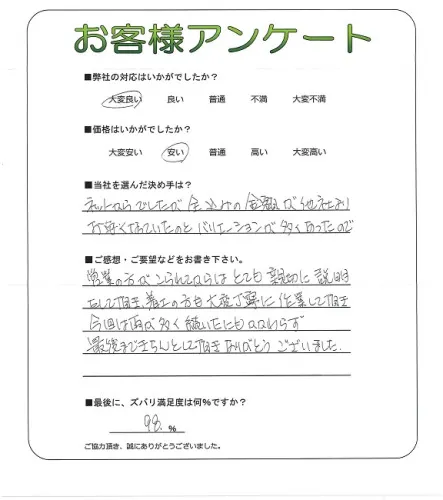 お客様アンケート
■弊社の対応はいかがでしたか？
大変良い 良い 普通 不満 大変不満
■価格はいかがでしたか？
大変安い 安い 普通 高い 大変高い
■当社を選んだ決め手は？
ネットからでしたが全込みの金額が他社列
お安くなっていたのとバリエーションが多くあったので
■ご感想・ご要望などをお書き下さい。
営業の方がこられてからはとても親切に説明
をして頂き、着工の方も大変丁寧に作業して頂き
今回は雨が多く続いたにもかかわらず
最後まできちんとして頂きありがとうございました。
■最後に、ズバリ満足度は何%ですか？
98 %
ご協力頂き、誠にありがとうございました。